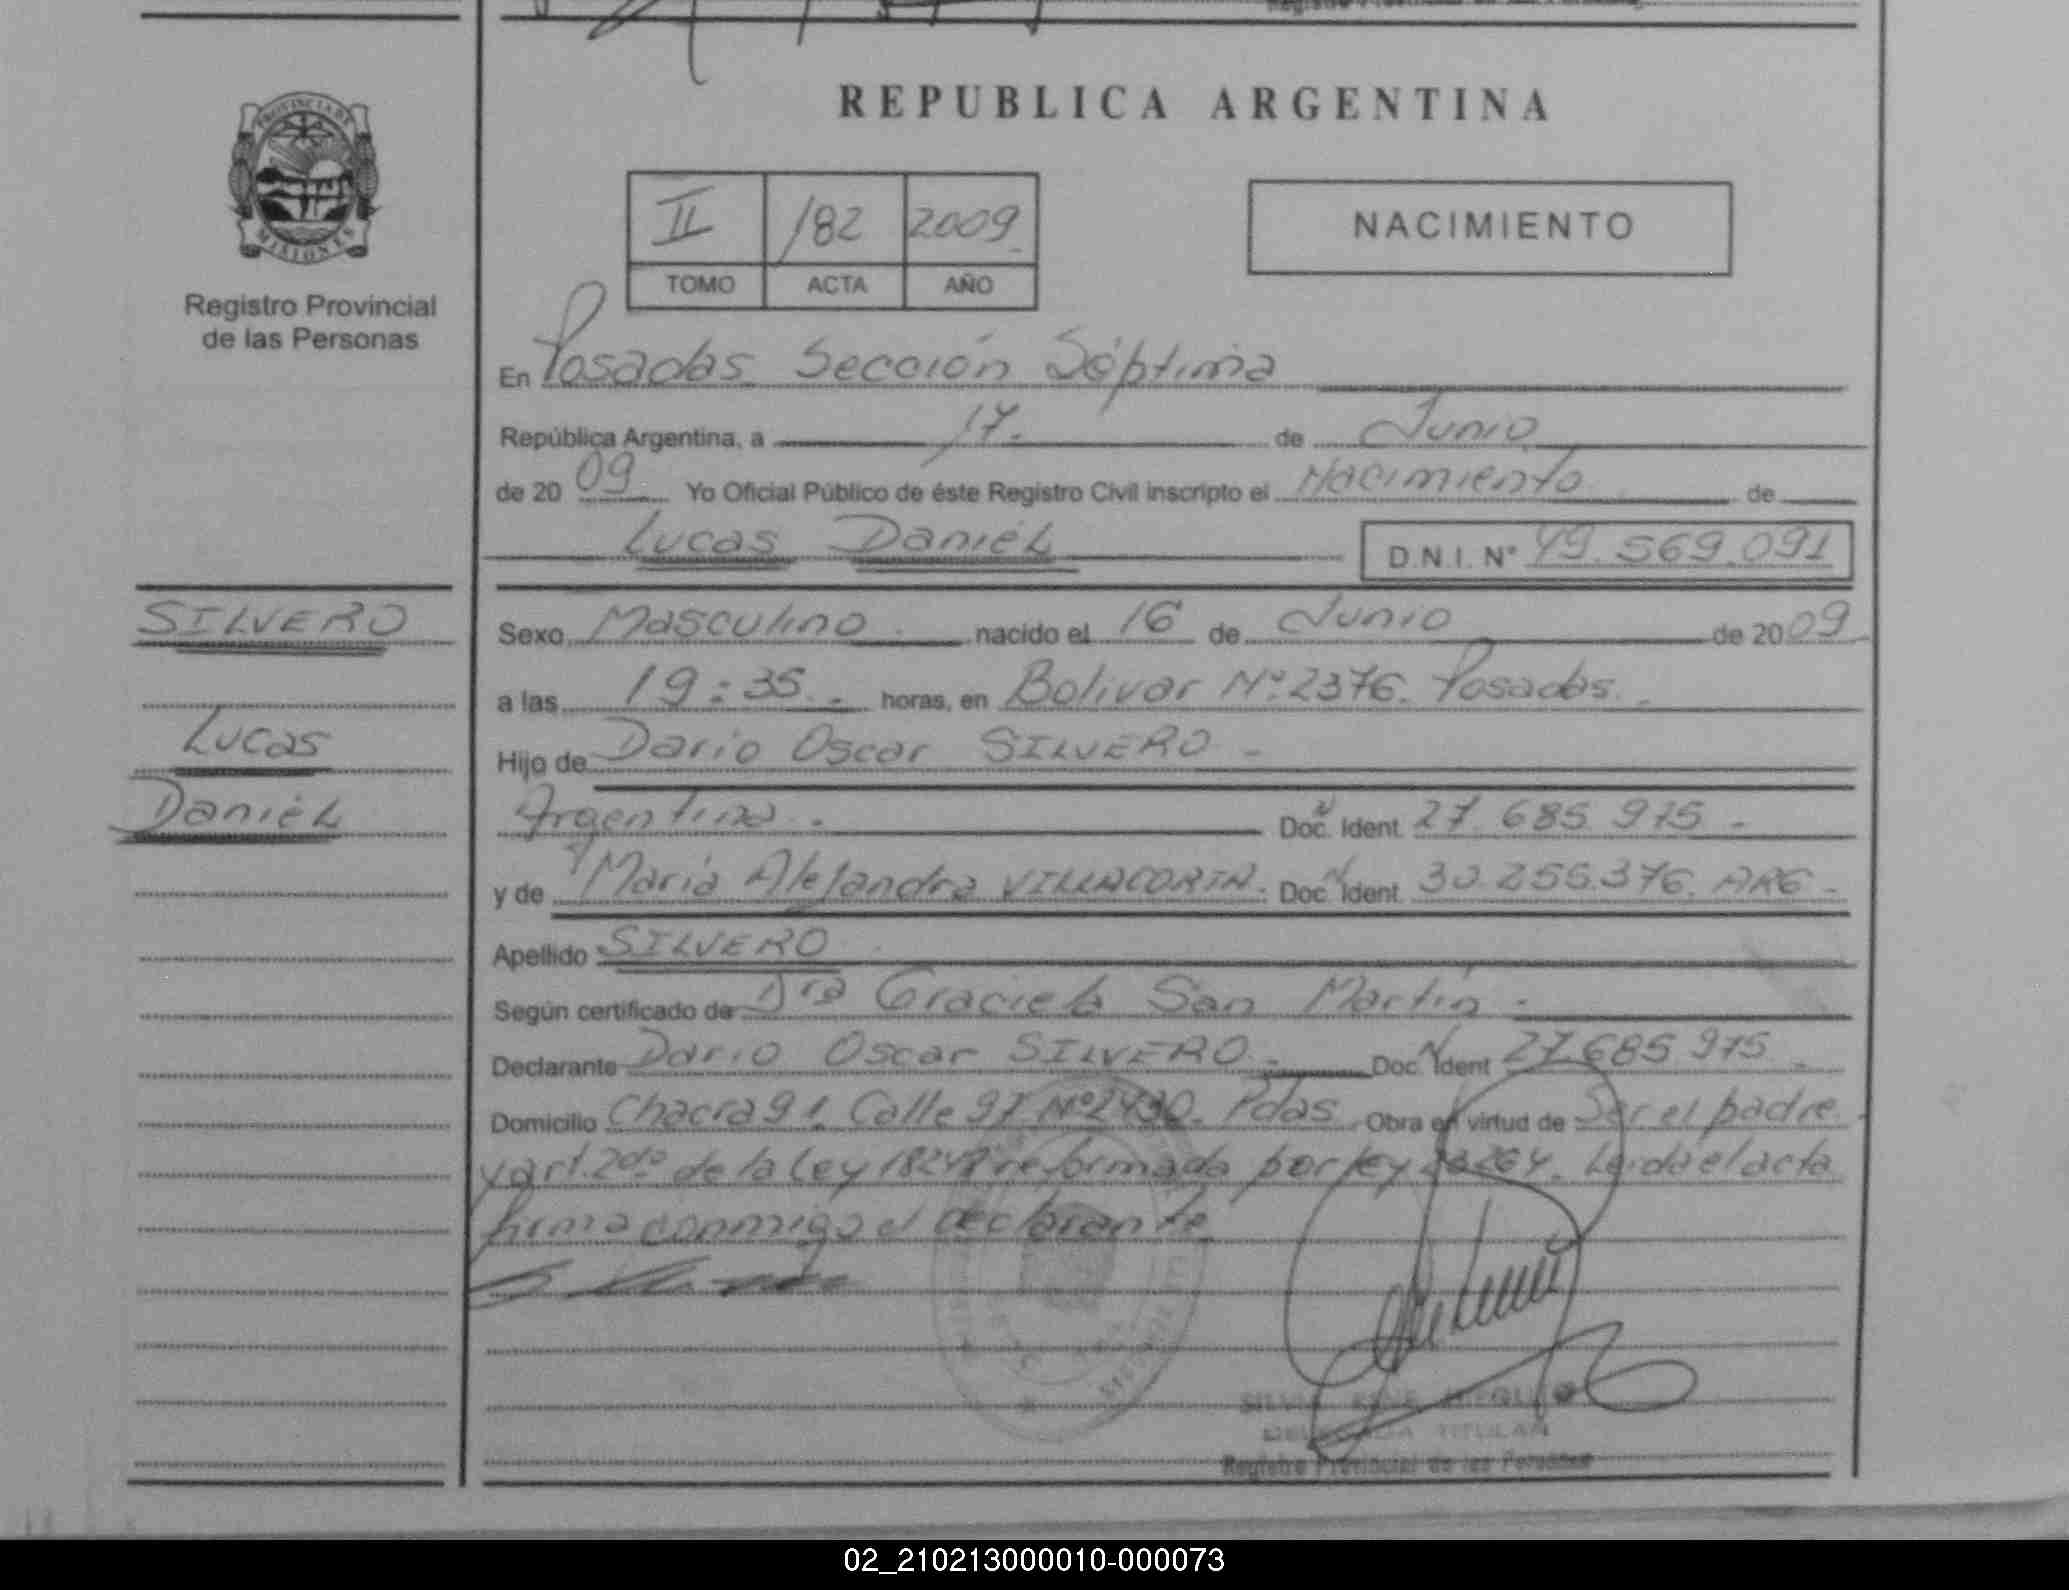 REPUBLICA ARGENTINA
PROVINCIA DE
MISIONES
Registro Provincial
de las Personas
II 182 2009
TOMO ACTA AÑO
NACIMIENTO
En Posadas Sección Séptima
República Argentina, a 17 de Junio
de 2009 Yo Oficial Público de éste Registro Civil inscripto el Nacimiento de
Lucas Daniel D.N.I. N° 49.569.091
SILVERO
Lucas
Daniel
Sexo Masculino nacido el 16 de Junio de 2009
a las 19:35 horas, en Bolivar N° 2376. Posadas.
Hijo de Dario Oscar SILVERO
Argentino. Doc. Ident 27.685.975
y de María Alejandra VILLACORTA. Doc. Ident 30.255.376. ARG
Apellido SILVERO
Según certificado de Dra Graciela San Martín
Declarante Dario Oscar SILVERO Doc. Ident 27.685.975
Domicilio Chacra 91. Calle 97 N° 2430. Pdas. Obra en virtud de Ser el padre
y art. 2do de la Ley 18248 reformada por ley 23264. Leida el acta
firma conmigo el declarante
DELEGADA TITULAR
Registro Provincial de las Personas
02_210213000010-000073